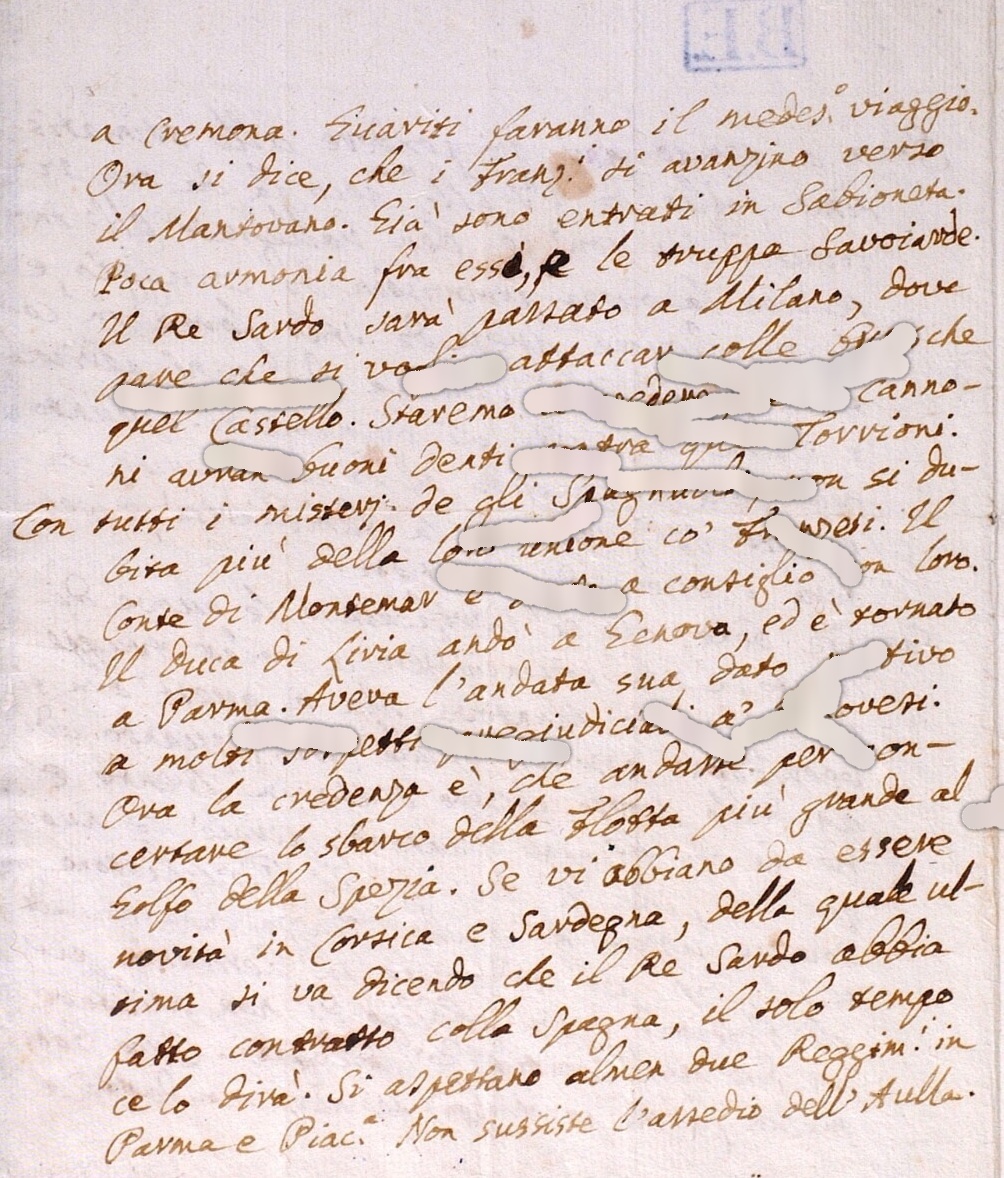 a Cremona. Guariti faranno il medes.º viaggio.
Ora si dice, che i Franz.i si avanzino verso
il Mantovano. Già sono entrati in Sabioneta.
Poca armonia fra essi, e le truppe Savoiarde.
Il Re Sardo sarà passato a Milano, dove
pare che si attaccar colle
quel Castello. Staremo canno-
ni avran buoni denti Torrioni.
Con tutti i misterj de gli non si du-
bita più della loro unione co' Il
Conte di Montemar a consiglio con loro.
Il Duca di Liria andò a Genova, ed è tornato
a Parma. Aveva l'andata sua dato
a molti a'
Ora la credenza è, che andasse per con-
certare lo sbarco della Flotta più grande al
Golfo della Spezia. Se vi abbiano da essere
novità in Corsica e Sardegna, della quale ul-
tima si va dicendo che il Re Sardo abbia
fatto contratto colla Spagna, il solo tempo
ce lo dirà. Si aspettano almen due Reggim.i in
Parma e Piac.a Non sussiste l'assedio dell'Aulla.